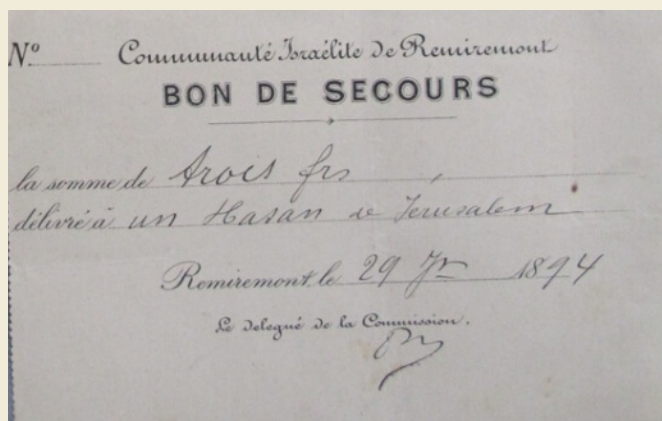 Nº Communauté Israélite de Remiremont
BON DE SECOURS
la somme de trois frs
délivré à un Hasan de Jerusalem
Remiremont, le 29 1894
Le délégué de la Commission.